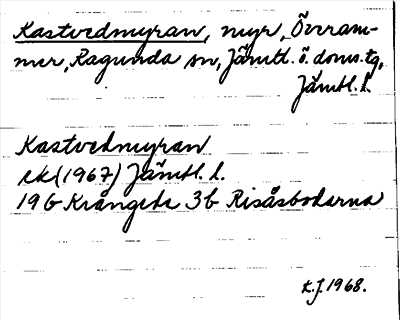 Kastvedmyran, myr, Överam-
mer, Ragunda sn, Jämtl. ö. doms.tg,
Jämtl. l.
Kastvedmyran
ek (1967) Jämtl. l.
19 G Krångede 3b Risåsbodarna
E.J. 1968.